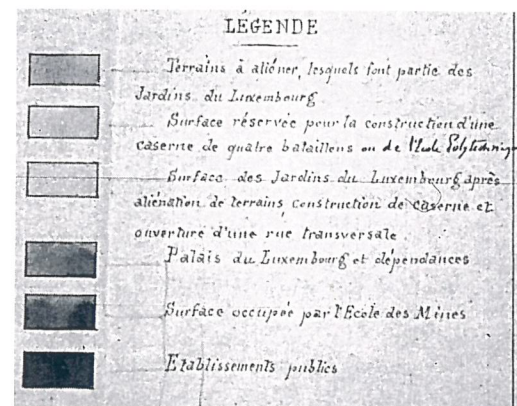 LÉGENDE
Terrains à aliéner, lesquels font partie des
Jardins du Luxembourg
Surface réservée pour la construction d'une
caserne de quatre bataillons ou de l'Ecole Polytechnique
Surface des Jardins du Luxembourg après
aliénation de terrains construction de caserne et
ouverture d'une rue transversale
Palais du Luxembourg et dépendances
Surface occupée par l'Ecole des Mines
Etablissements publics